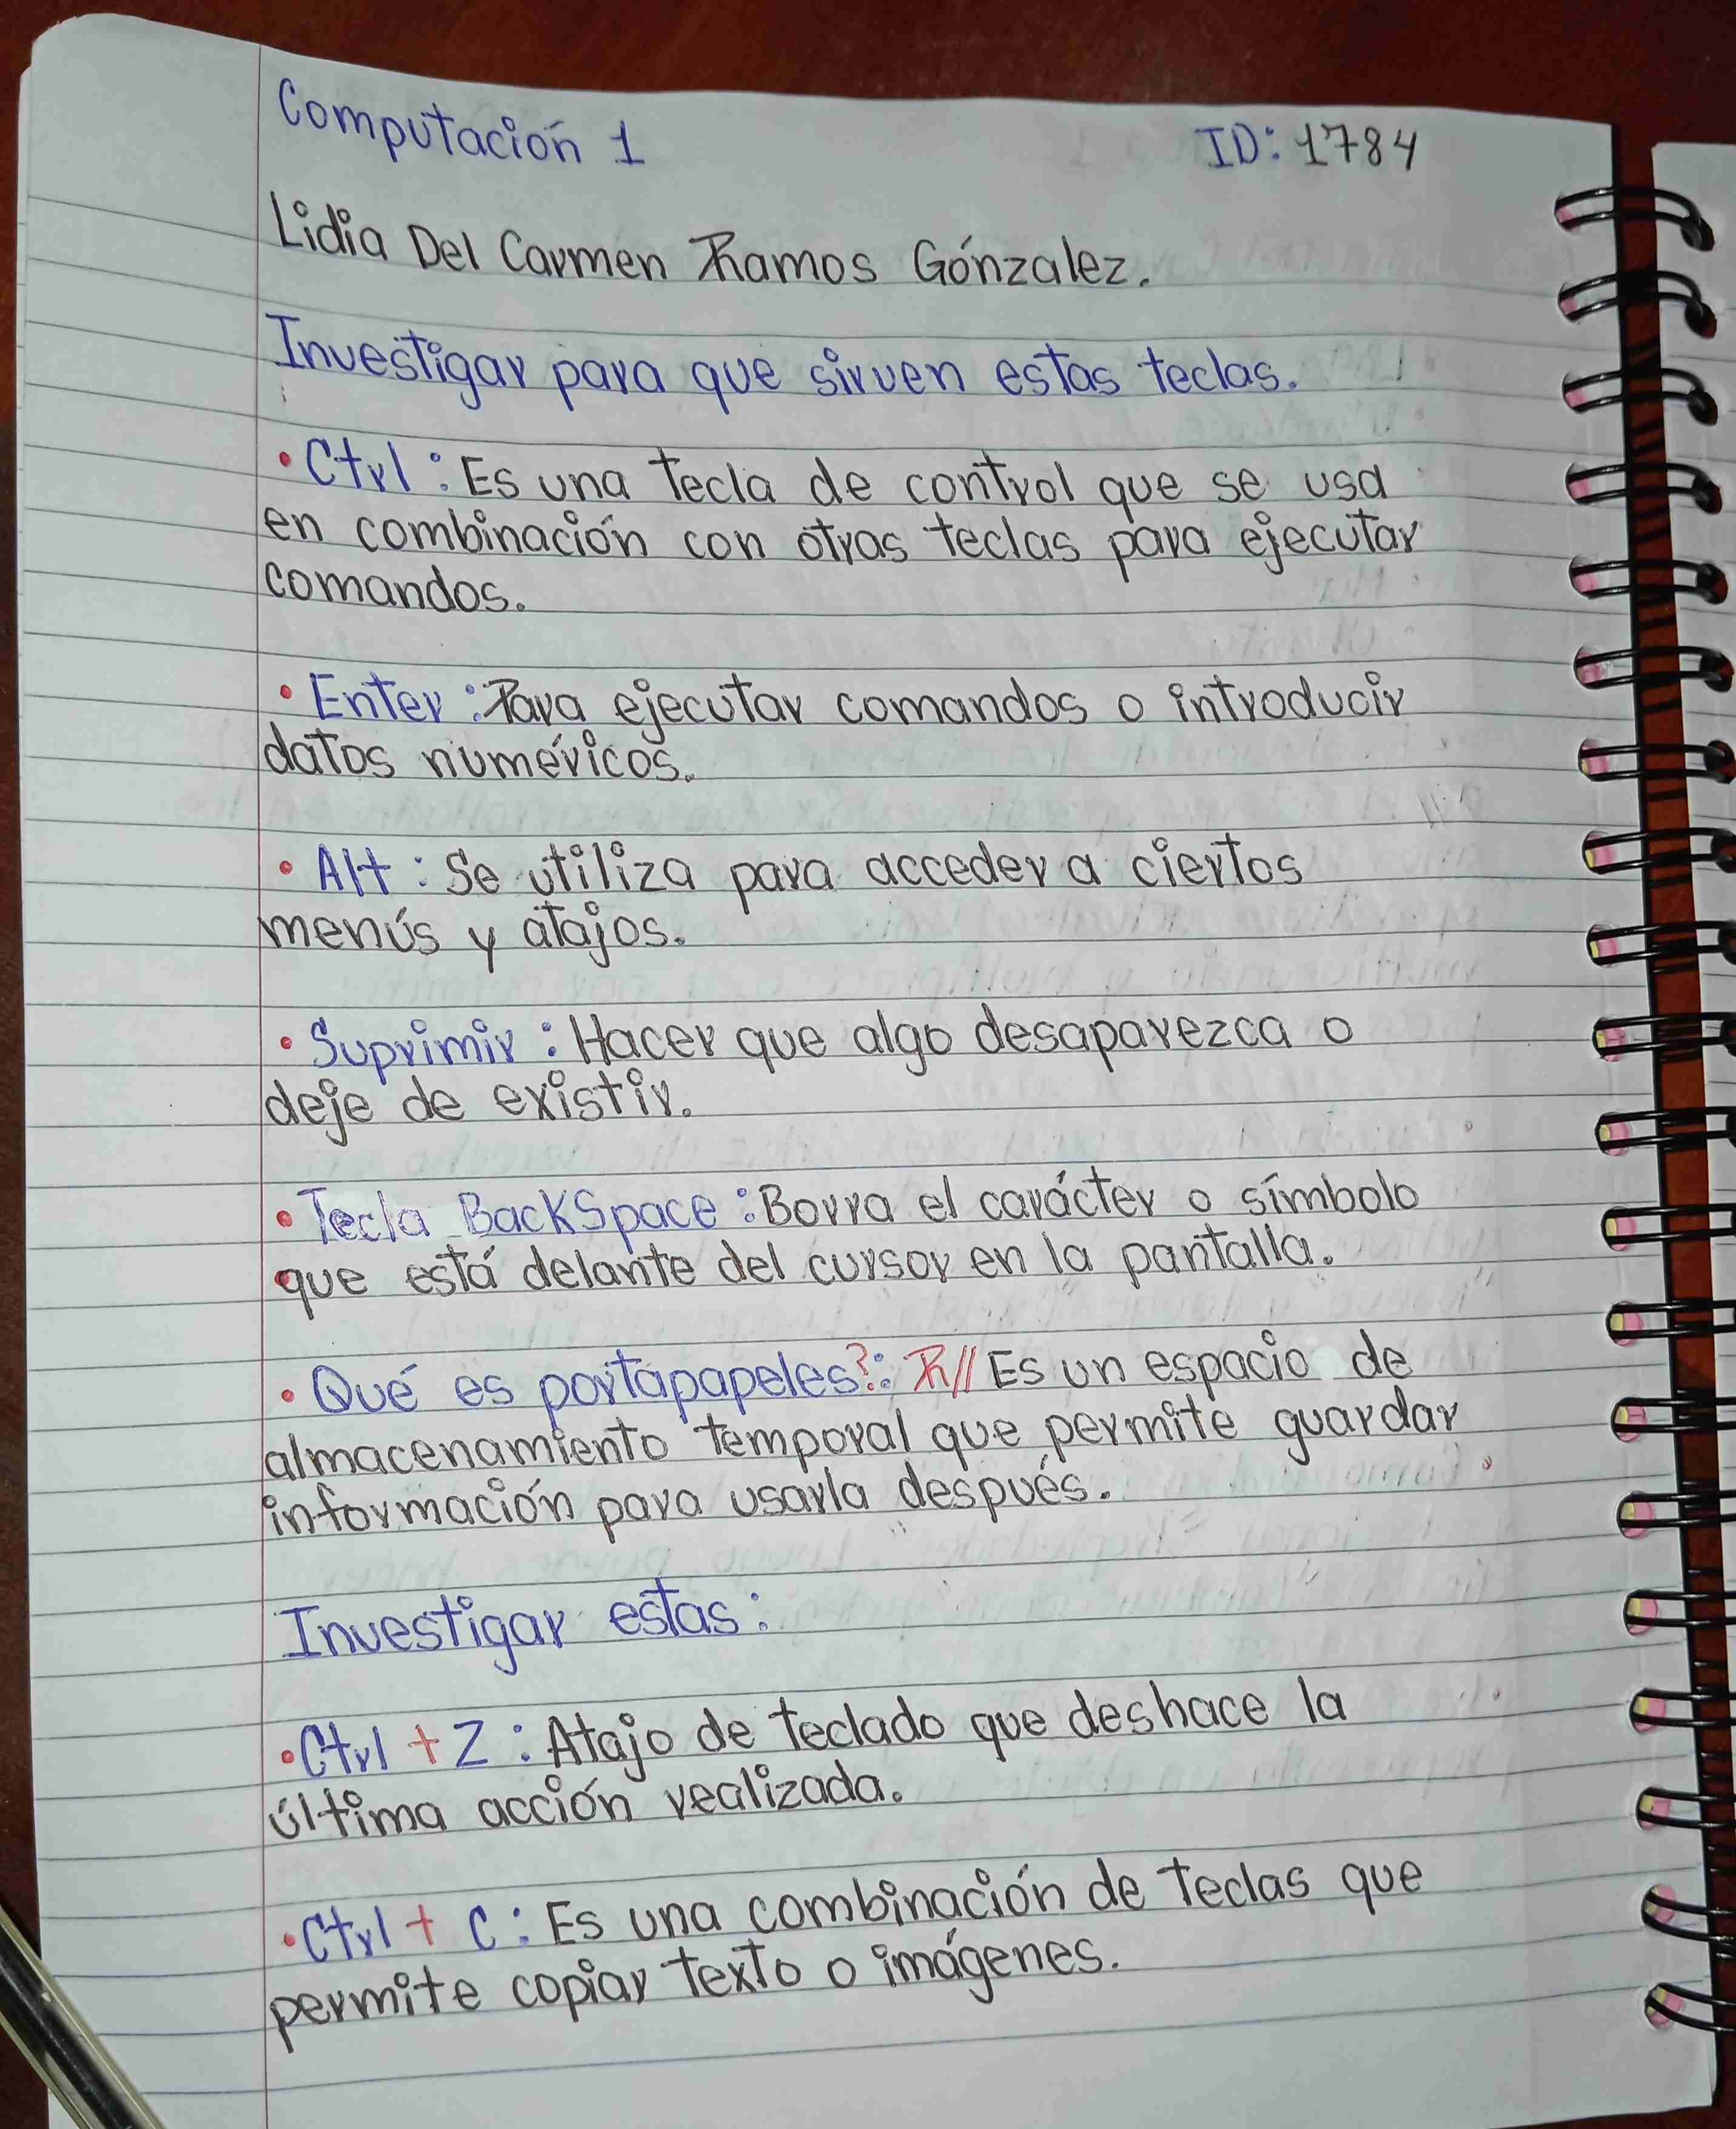 Computación 1 ID: 1784
Lidia Del Carmen Ramos Gónzalez.
Investigar para que sirven estas teclas.
• Ctrl: Es una tecla de control que se usa
en combinación con otras teclas para ejecutar
comandos.
• Enter: Para ejecutar comandos o introducir
datos numéricos.
• Alt: Se utiliza para acceder a ciertos
menús y atajos.
• Suprimir: Hacer que algo desaparezca o
deje de existir.
• Tecla BackSpace: Borra el carácter o símbolo
que está delante del cursor en la pantalla.
• Qué es portapapeles?: R// Es un espacio de
almacenamiento temporal que permite guardar
información para usarla después.
Investigar estas:
• Ctrl + Z: Atajo de teclado que deshace la
última acción realizada.
• Ctrl + C: Es una combinación de teclas que
permite copiar texto o imágenes.